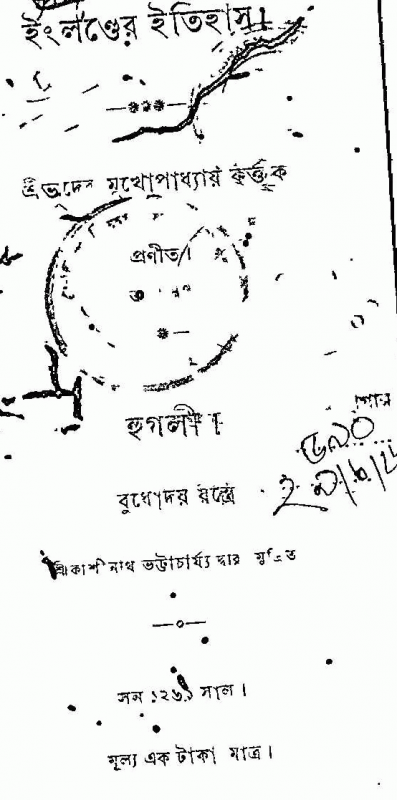 ইংলণ্ডের ইতিহাস।
শ্রীভূদেব মুখোপাধ্যায় কর্ত্তৃক
প্রণীত।
হুগলী।
বুধোদয় যন্ত্রে
শ্রীকাশীনাথ ভট্টাচার্য্য দ্বারা মুদ্রিত
সন ১২৬৯ সাল।
মূল্য এক টাকা মাত্র।